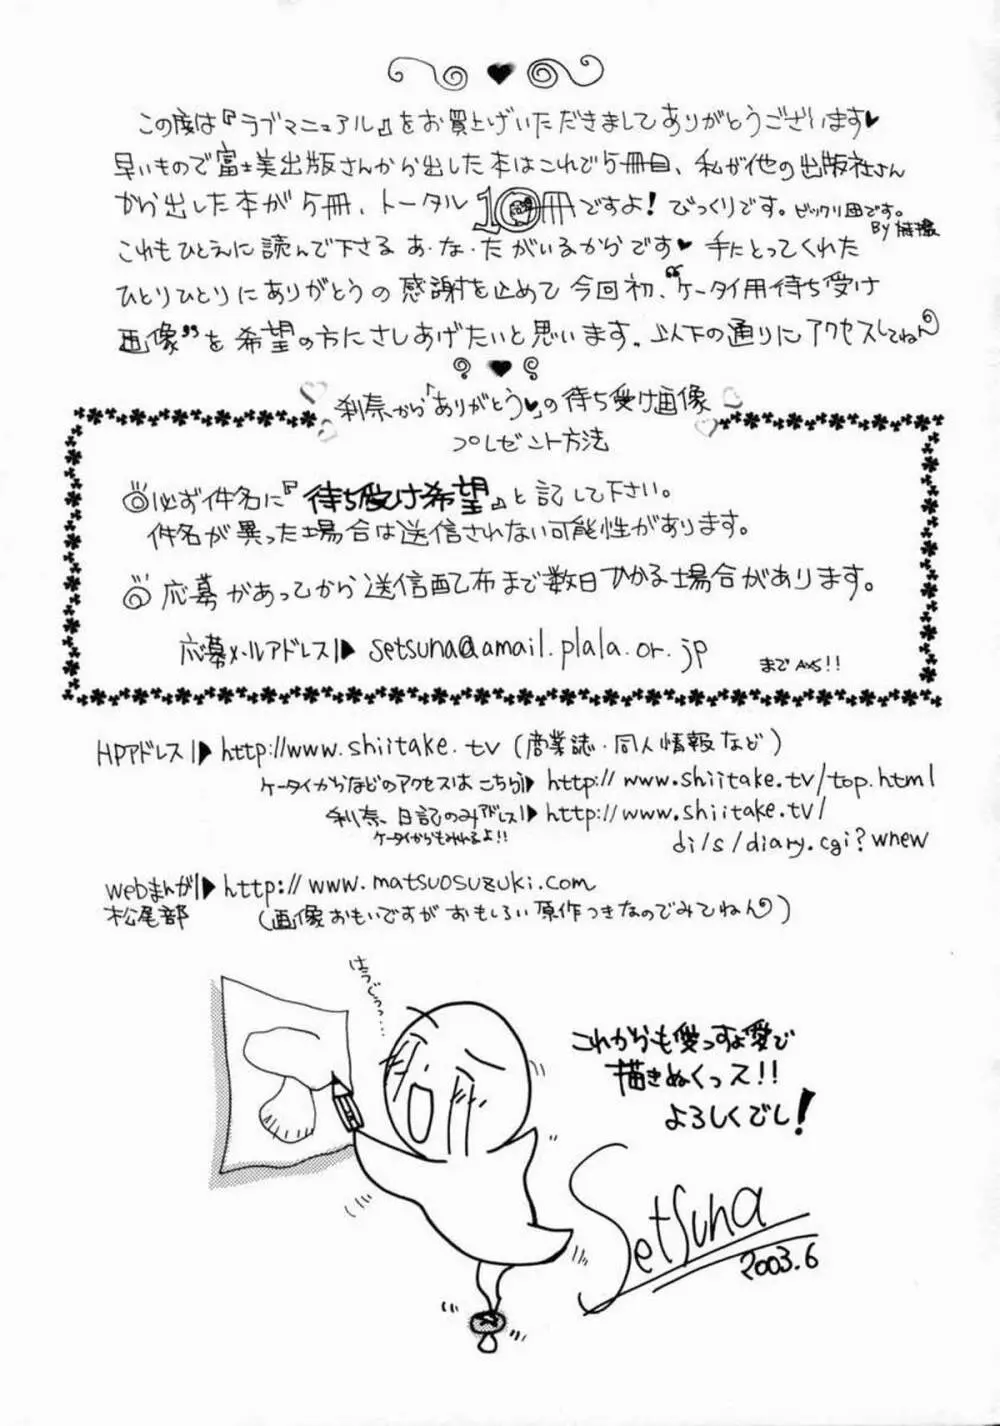 この度は『ラブマニュアル』をお買上げいただきましてありがとうございます♥
早いもので富士美出版さんから出した本はこれで5冊目、私が他の出版社さん
から出した本が5冊、トータル10冊ですよ!びっくりです。ビックリ団です。
By
これもひとえに読んで下さるあ・な・たがいるからです♥手にとってくれた
ひとりひとりにありがとうの感謝を込めて今回初、“ケータイ用待ち受け
画像”を希望の方にさしあげたいと思います。以下の通りにアクセスしてねん
刹奈から「ありがとう♥」の待ち受け画像
プレゼント方法
◎必ず件名に『待ち受け希望』と記して下さい。
件名が異った場合は送信されない可能性があります。
◎応募があってから送信配布まで数日かかる場合があります。
応募メールアドレス▶setsuna@amail.plala.or.jp
まで!!
HPアドレス▶http://www.shiitake.tv(商業誌・同人情報など)
ケータイからなどのアクセスはこちら▶http://www.shiitake.tv/top.html
刹奈、日記のみアドレス▶http://www.shiitake.tv/
ケータイからもみれるよ!!
di/s/diary.cgi?wnew
webまんが▶http://www.matsuosuzuki.com
松尾部
(画像おもいですがおもしろい原作つきなのでみてねん)
はうじうっ…
これからも愛っすよ愛で
描きぬくっス!!
よろしくでし!
Setsuna
2003.6